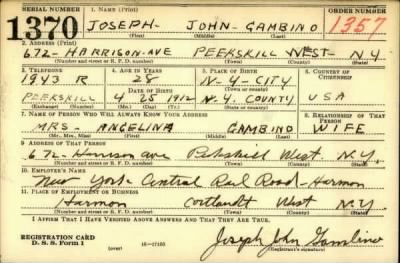 SERIAL NUMBER 1. NAME (Print) ORDER NUMBER
1370 JOSEPH- JOHN- GAMBINO 1357
(First) (Middle) (Last)
2. ADDRESS (Print)
672- HARRISON-AVE PEEKSKILL WEST- NY
(Number and street or R. F. D. number) (Town) (County) (State)
3. TELEPHONE 4. AGE IN YEARS 5. PLACE OF BIRTH 6. COUNTRY OF CITIZENSHIP
1943 R 28 N-Y-CITY
(Town or county)
DATE OF BIRTH
PEEKSKILL 4 25 1912 N-Y. COUNTY USA
(Exchange) (Number) (Mo.) (Day) (Yr.) (State or country)
7. NAME OF PERSON WHO WILL ALWAYS KNOW YOUR ADDRESS 8. RELATIONSHIP OF THAT PERSON
MRS- ANGELINA GAMBINO WIFE
(Mr., Mrs., Miss) (First) (Middle) (Last)
9. ADDRESS OF THAT PERSON
672- Harrison ave Peekskill West. N.Y.
(Number and street or R. F. D. number) (Town) (County) (State)
10. EMPLOYER'S NAME
New York Central Rail Road-Harmon
11. PLACE OF EMPLOYMENT OR BUSINESS
Harmon Cortlandt West N.Y.
(Number and street or R. F. D. number) (Town) (County) (State)
I AFFIRM THAT I HAVE VERIFIED ABOVE ANSWERS AND THAT THEY ARE TRUE.
REGISTRATION CARD
D. S. S. Form 1 (over) 16-17105 Joseph John Gambino
(Registrant's signature)